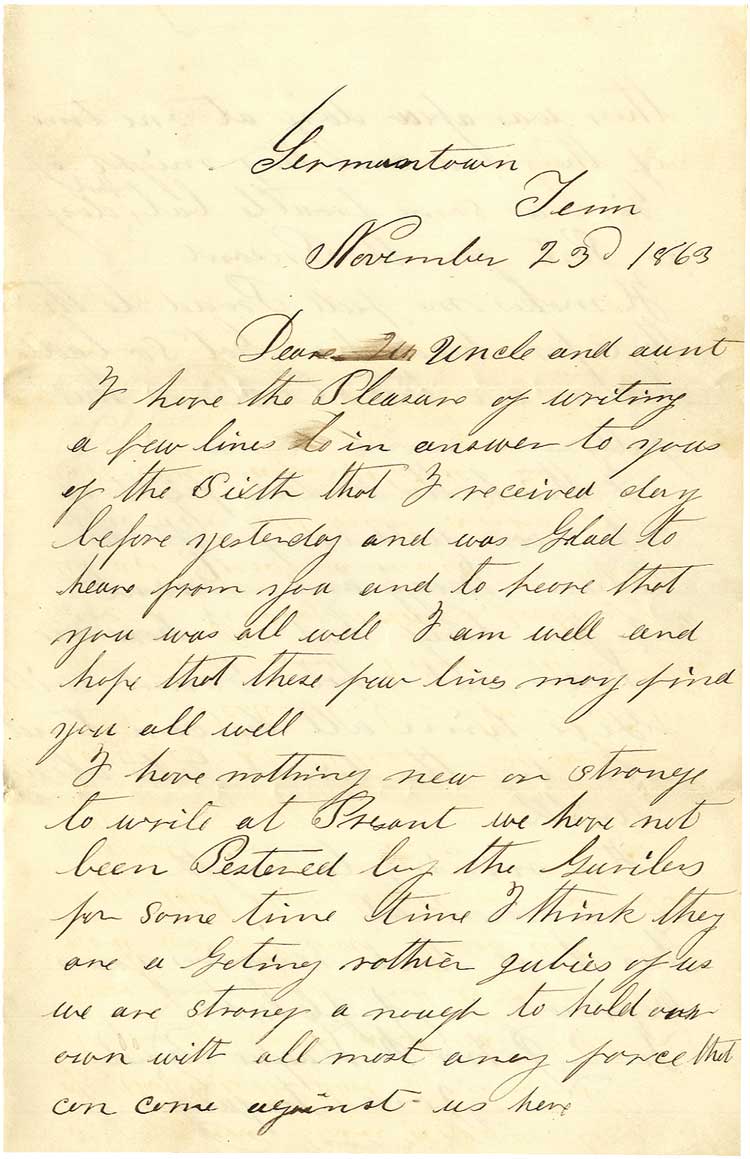 Germantown
Tenn
November 23d 1863
Deare Uncle and aunt
I have the Pleasure of writing
a few lines in answer to yous
of the Sixth that I received day
before yesterday and was Glad to
heare from you and to heare that
you was all well I am well and
hope that these few lines may find
you all well
I have nothing new or strange
to write at Present we have not
been Pestered by the Gurilers
for some time time I think they
are a Geting rother jubies of us
we are strong a nough to hold our
own with all most aney force that
can come against us here